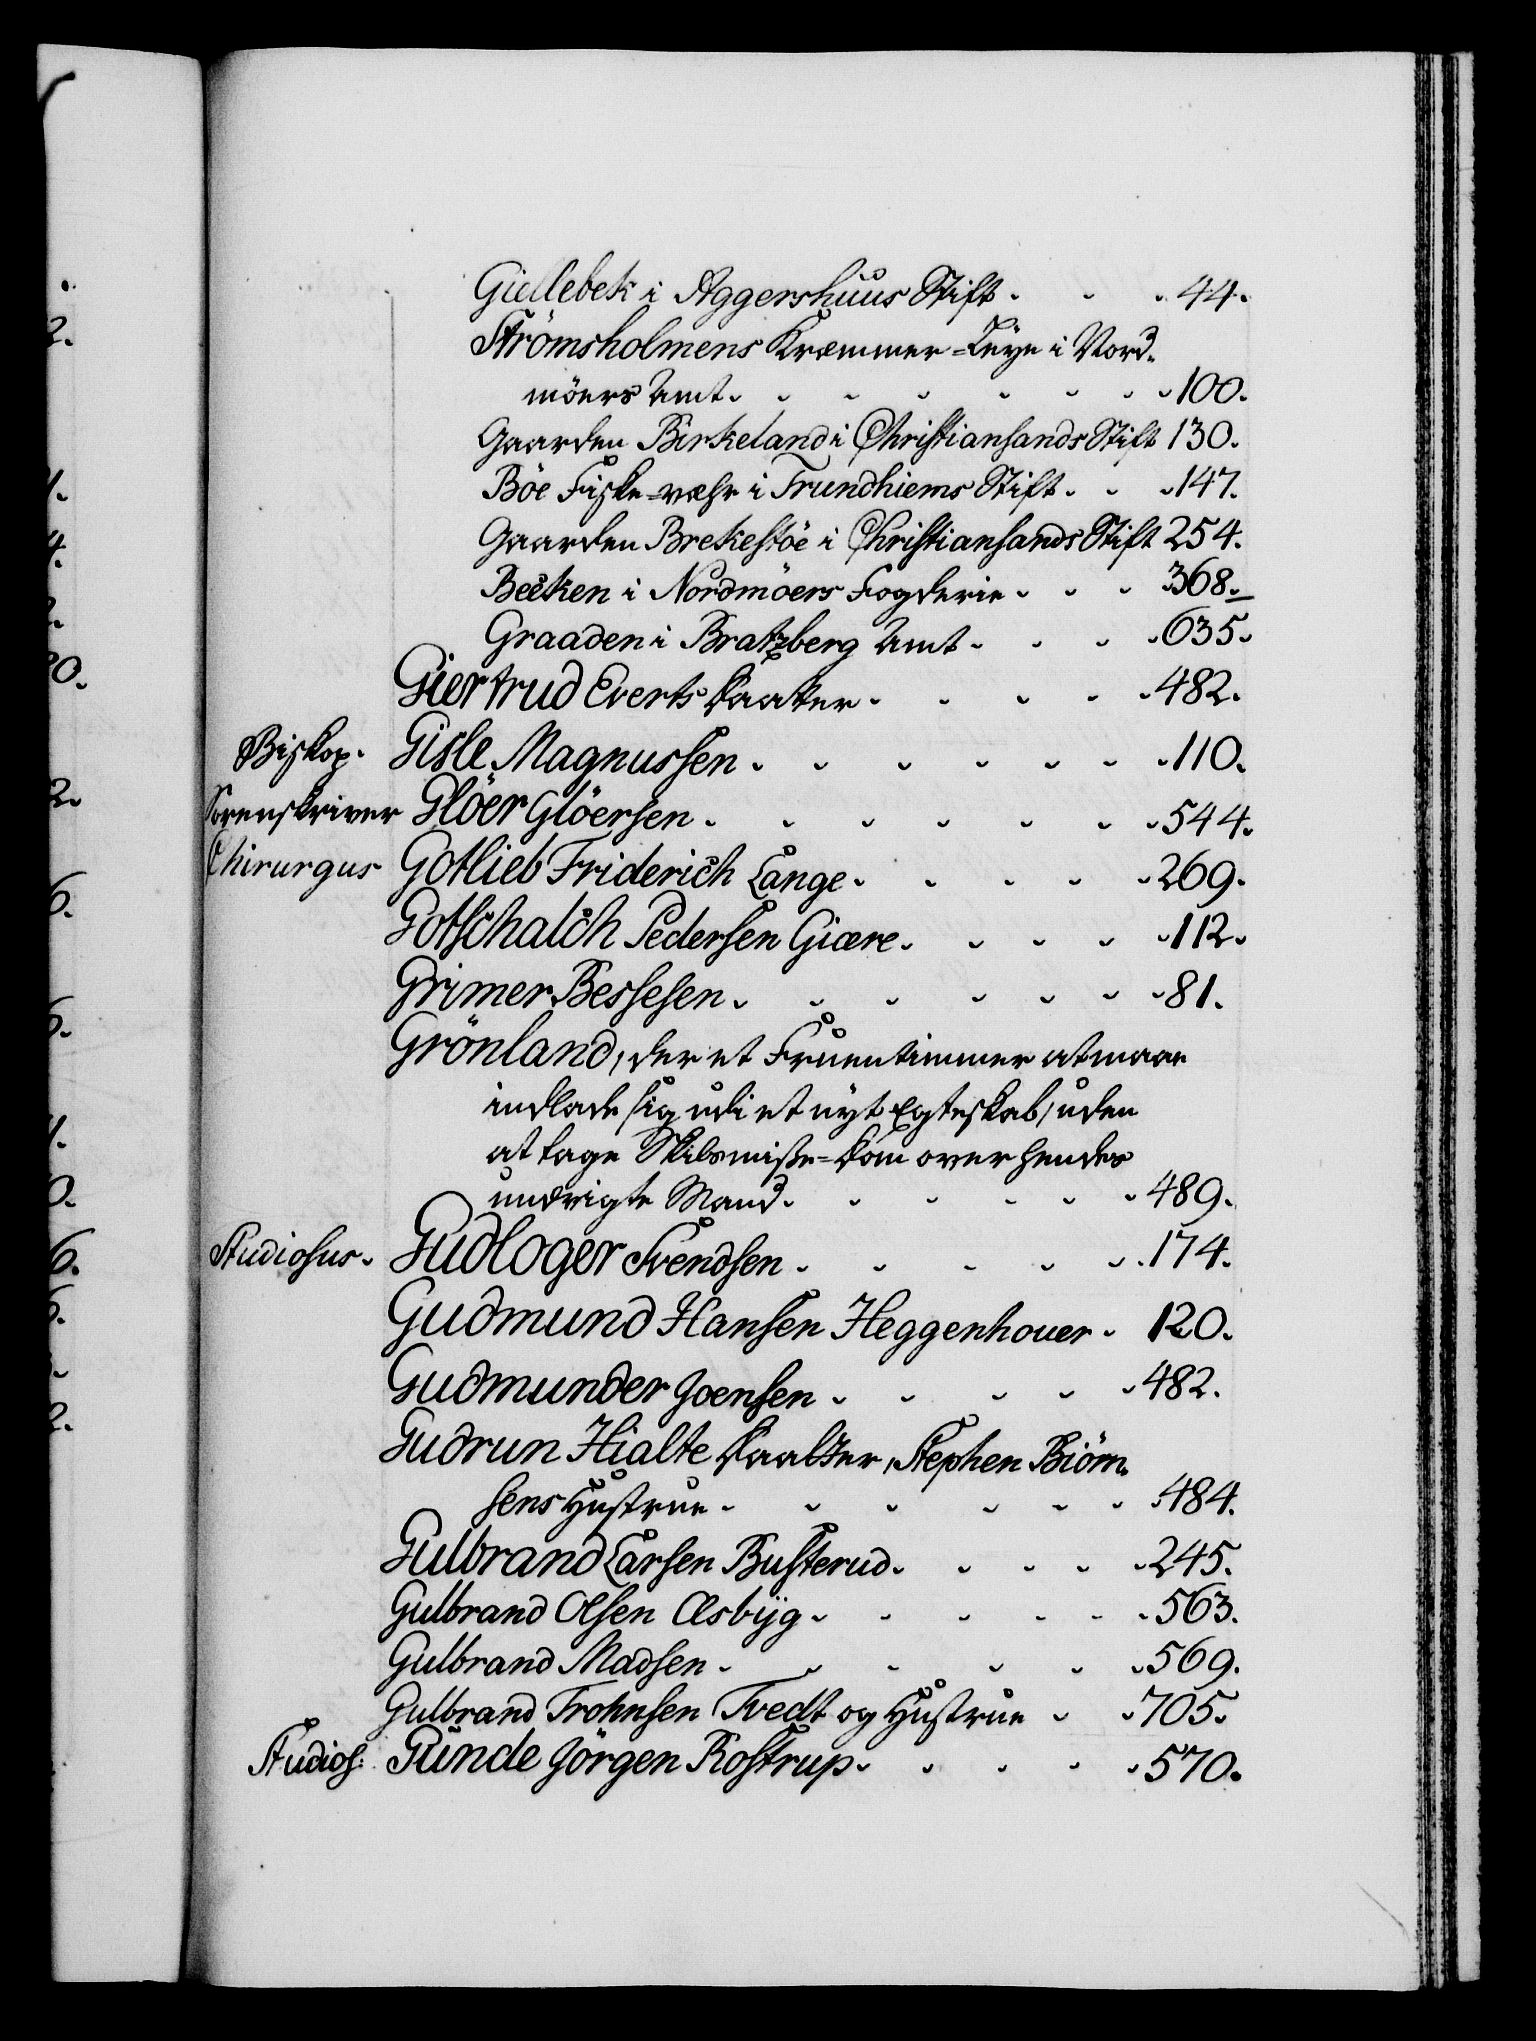 Giellebek i Aggershuus Stift. 44.
Strömsholmens Kræmmer=Leye i Nord-
möers Amt. 100.
Gaarden Birkeland i Christiansands Stift 130.
Böe Fiske-vehr i Trundhiems Stift. 147.
Gaarden Brekestöe i Christiansands Stift 254.
Becken i Nordmöers Fogderie. 368.
Graaden i Bratzberg Amt. 635.
Giertrud Everts Daatter. 482.
Biskop. Gisle Magnussen. 110.
Sorenskriver Glöer Glöersen. 544.
Chirurgus Gotlieb Friderich Lange. 269.
Gotschalch Pedersen Giære. 112.
Grimer Bessesen. 81.
Grönland, der et Fruentimmer at maae
indlade sig udi et nyt Egteskab, uden
at tage Skilsmisse=Dom over hendes
undvigte Mand. 489.
Studiosus. Gudloger Svendsen. 174.
Gudmund Hansen Heggenhouer. 120.
Gudmunder Joensen. 482.
Gudrun Hialte Daatter, Stephen Biörn-
sens Hustrue. 484.
Gulbrand Larsen Busterud. 245.
Gulbrand Olsen Æsbÿg. 563.
Gulbrand Madsen. 569.
Gulbrand Trohnsen Tvedt og Hustrue. 705.
Studios: Gunde Jörgen Rostrup. 570.